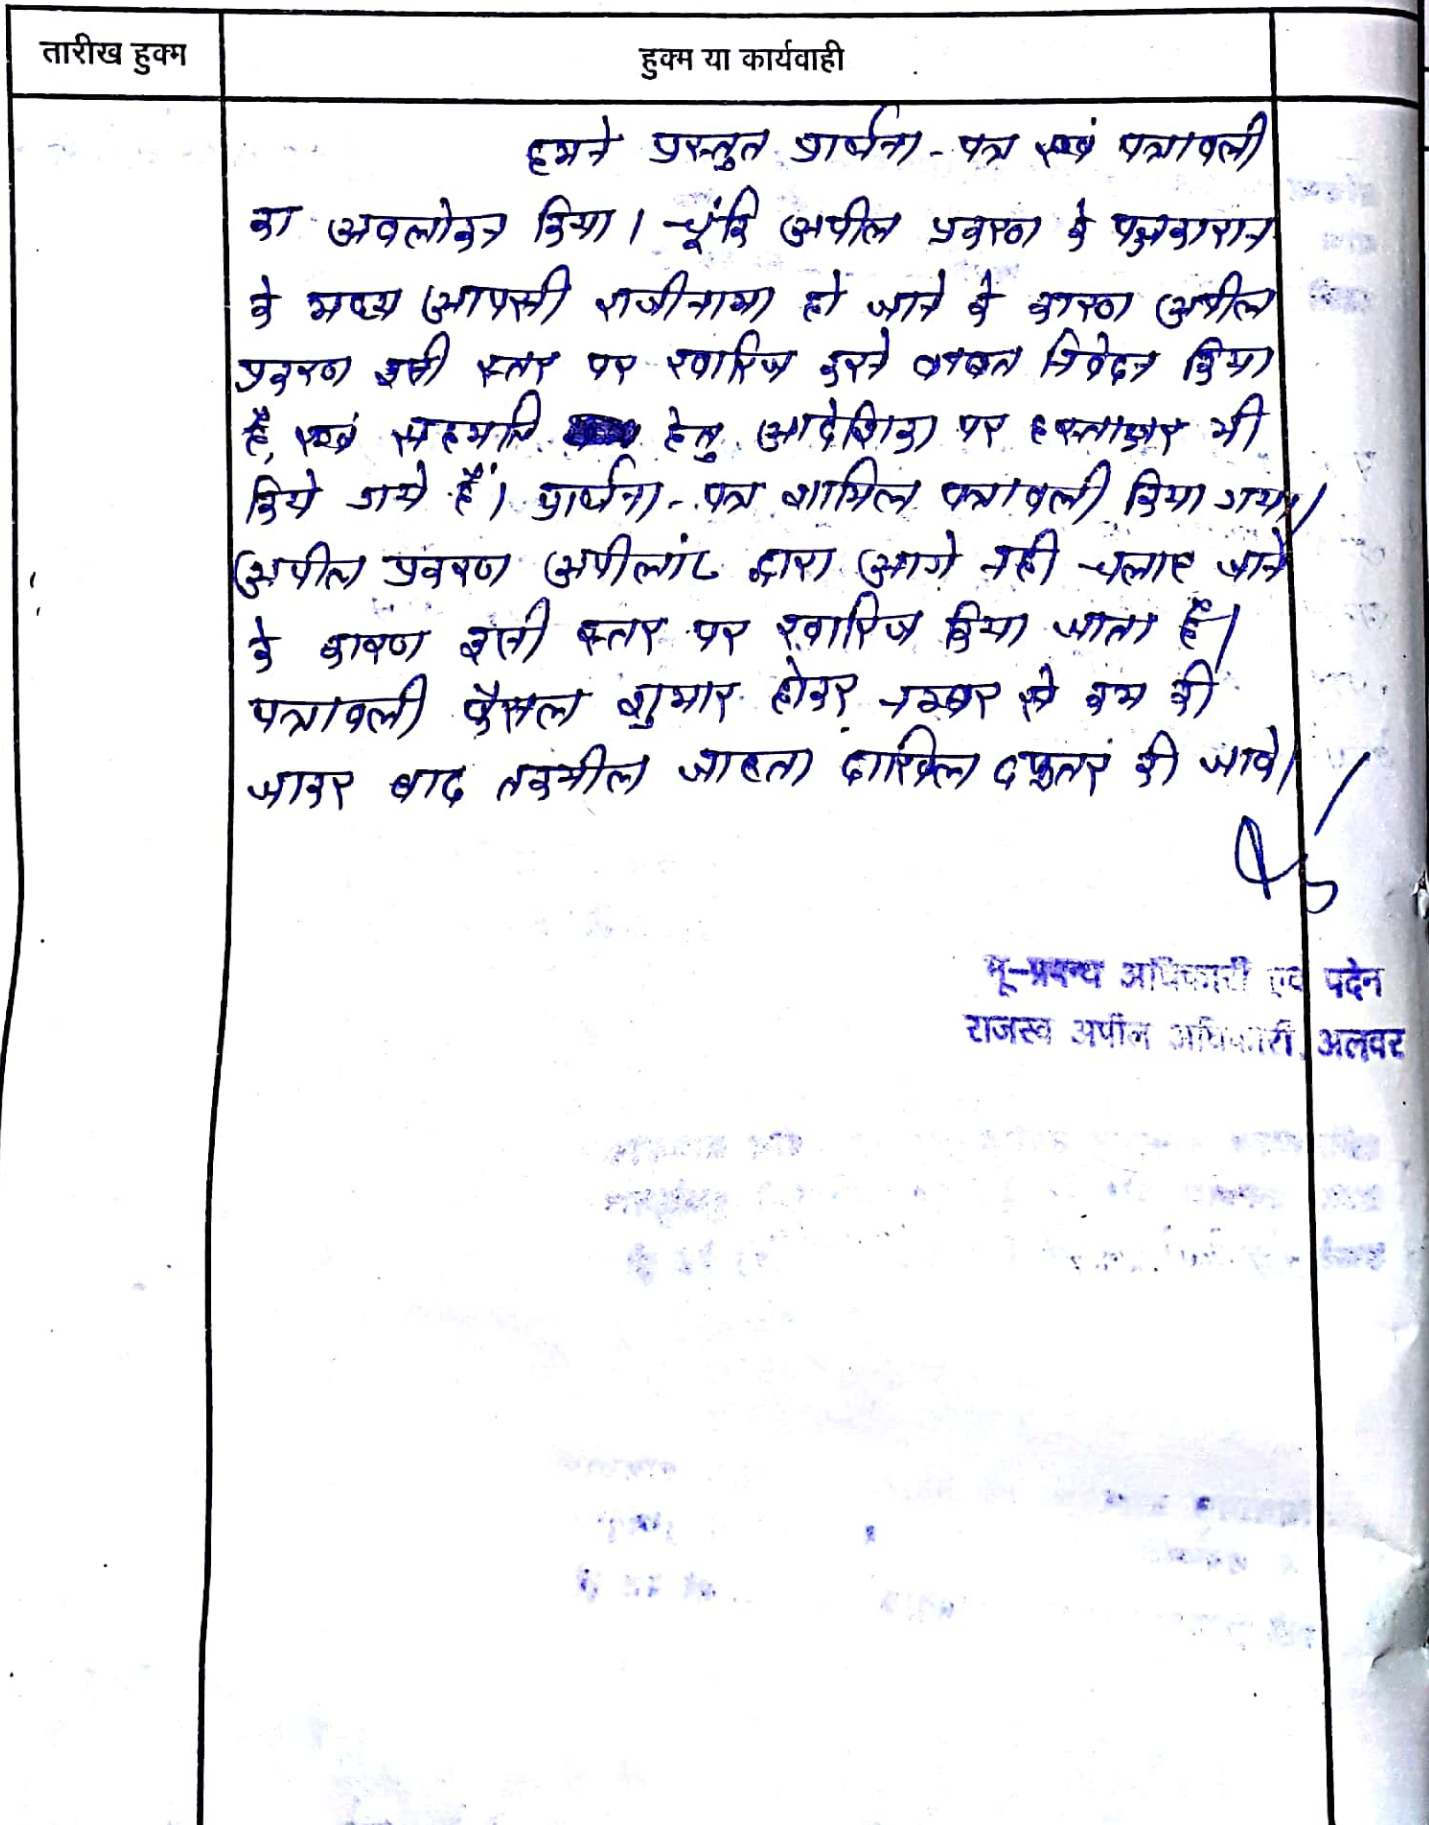 तारीख हुक्म
हुक्म या कार्यवाही
हमने प्रस्तुत प्रार्थना-पत्र एवं पत्रावली
का अवलोकन किया। चूंकि अपील प्रकरण के पक्षकारान
के मध्य आपसी राजीनामा हो जाने के कारण अपील
प्रकरण इसी स्तर पर खारिज करने बाबत निवेदन किया
है, एवं सहमति हेतु आदेशिका पर हस्ताक्षर भी
किये गये हैं। प्रार्थना-पत्र शामिल पत्रावली किया गया।
अपील प्रकरण अपीलांट द्वारा आगे नही चलाए जाने
के कारण इसी स्तर पर खारिज किया जाता है।
पत्रावली फैसल शुमार होकर नम्बर से कम की
जाकर बाद तकमील जाब्ता दाखिल दफ्तर की जावे।
भू-प्रबन्ध अधिकारी एवं पदेन
राजस्व अपील अधिकारी, अलवर